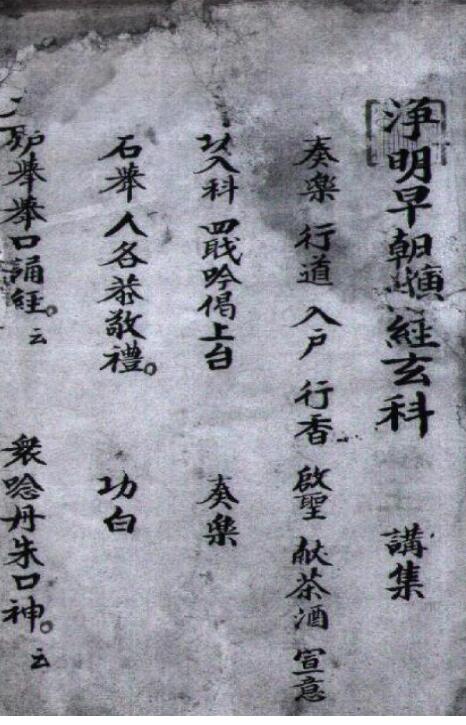 淨明早朝 經玄科 講集
奏樂 行道 入戶 行香 啟聖 献茶酒 宣意
入科 四 吟偈上台 奏樂
石舉 人各恭敬禮。 功白
炉舉舉口誦經。云 衆唸丹朱口神。云